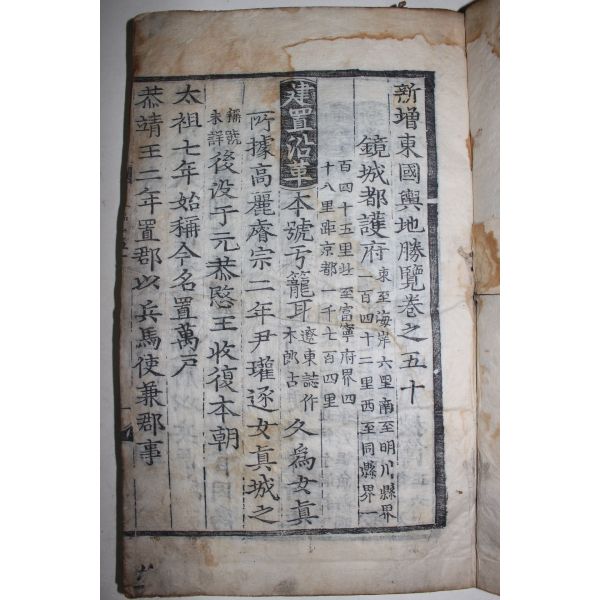 新增東國輿地勝覽卷之五十
鏡城都護府東至海岸六里南至明川縣界
一百四十二里西至同縣界一
百四十五里北至富寧府界四
十八里距京都一千七百四里
建置沿革本號亐籠耳遼東誌作
木郎古久爲女眞
所據高麗睿宗二年尹瓘逐女眞城之
稱號
未詳後設于元恭愍王收復本朝
太祖七年始稱今名置萬戶
恭靖王二年置郡以兵馬使兼郡事